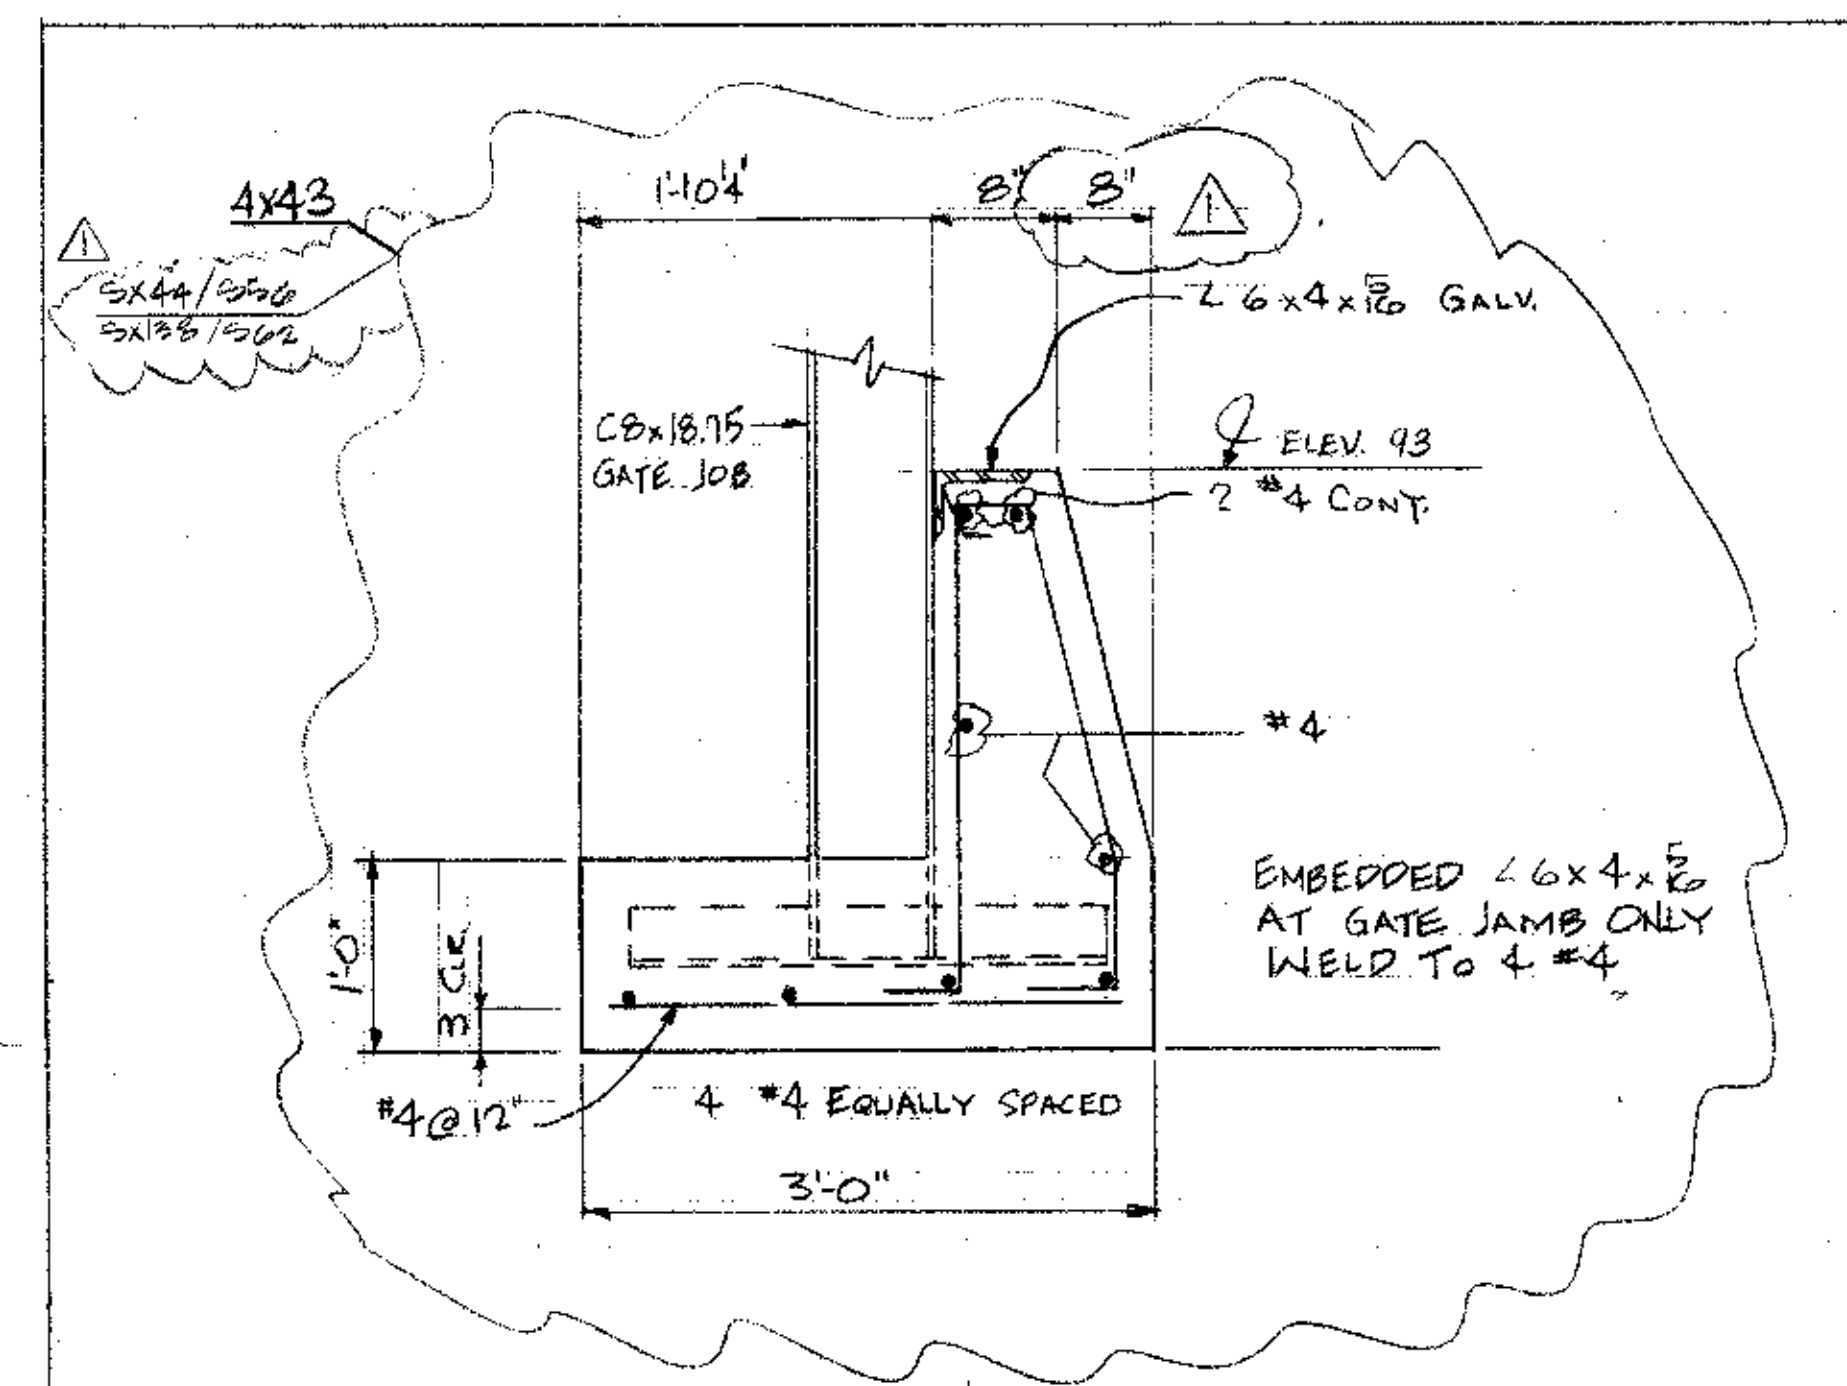 1'-10 1/4"
8"
8"
1
4x43
1
5x44/S56
5x138/S62
L 6x4x5/16 GALV.
C8x18.75
GATE JOB
ELEV. 93
2 #4 CONT.
#4
EMBEDDED L 6x4x5/16
AT GATE JAMB ONLY
WELD TO 4 #4
1'-0"
3 CLR.
#4@12"
4 #4 EQUALLY SPACED
3'-0"